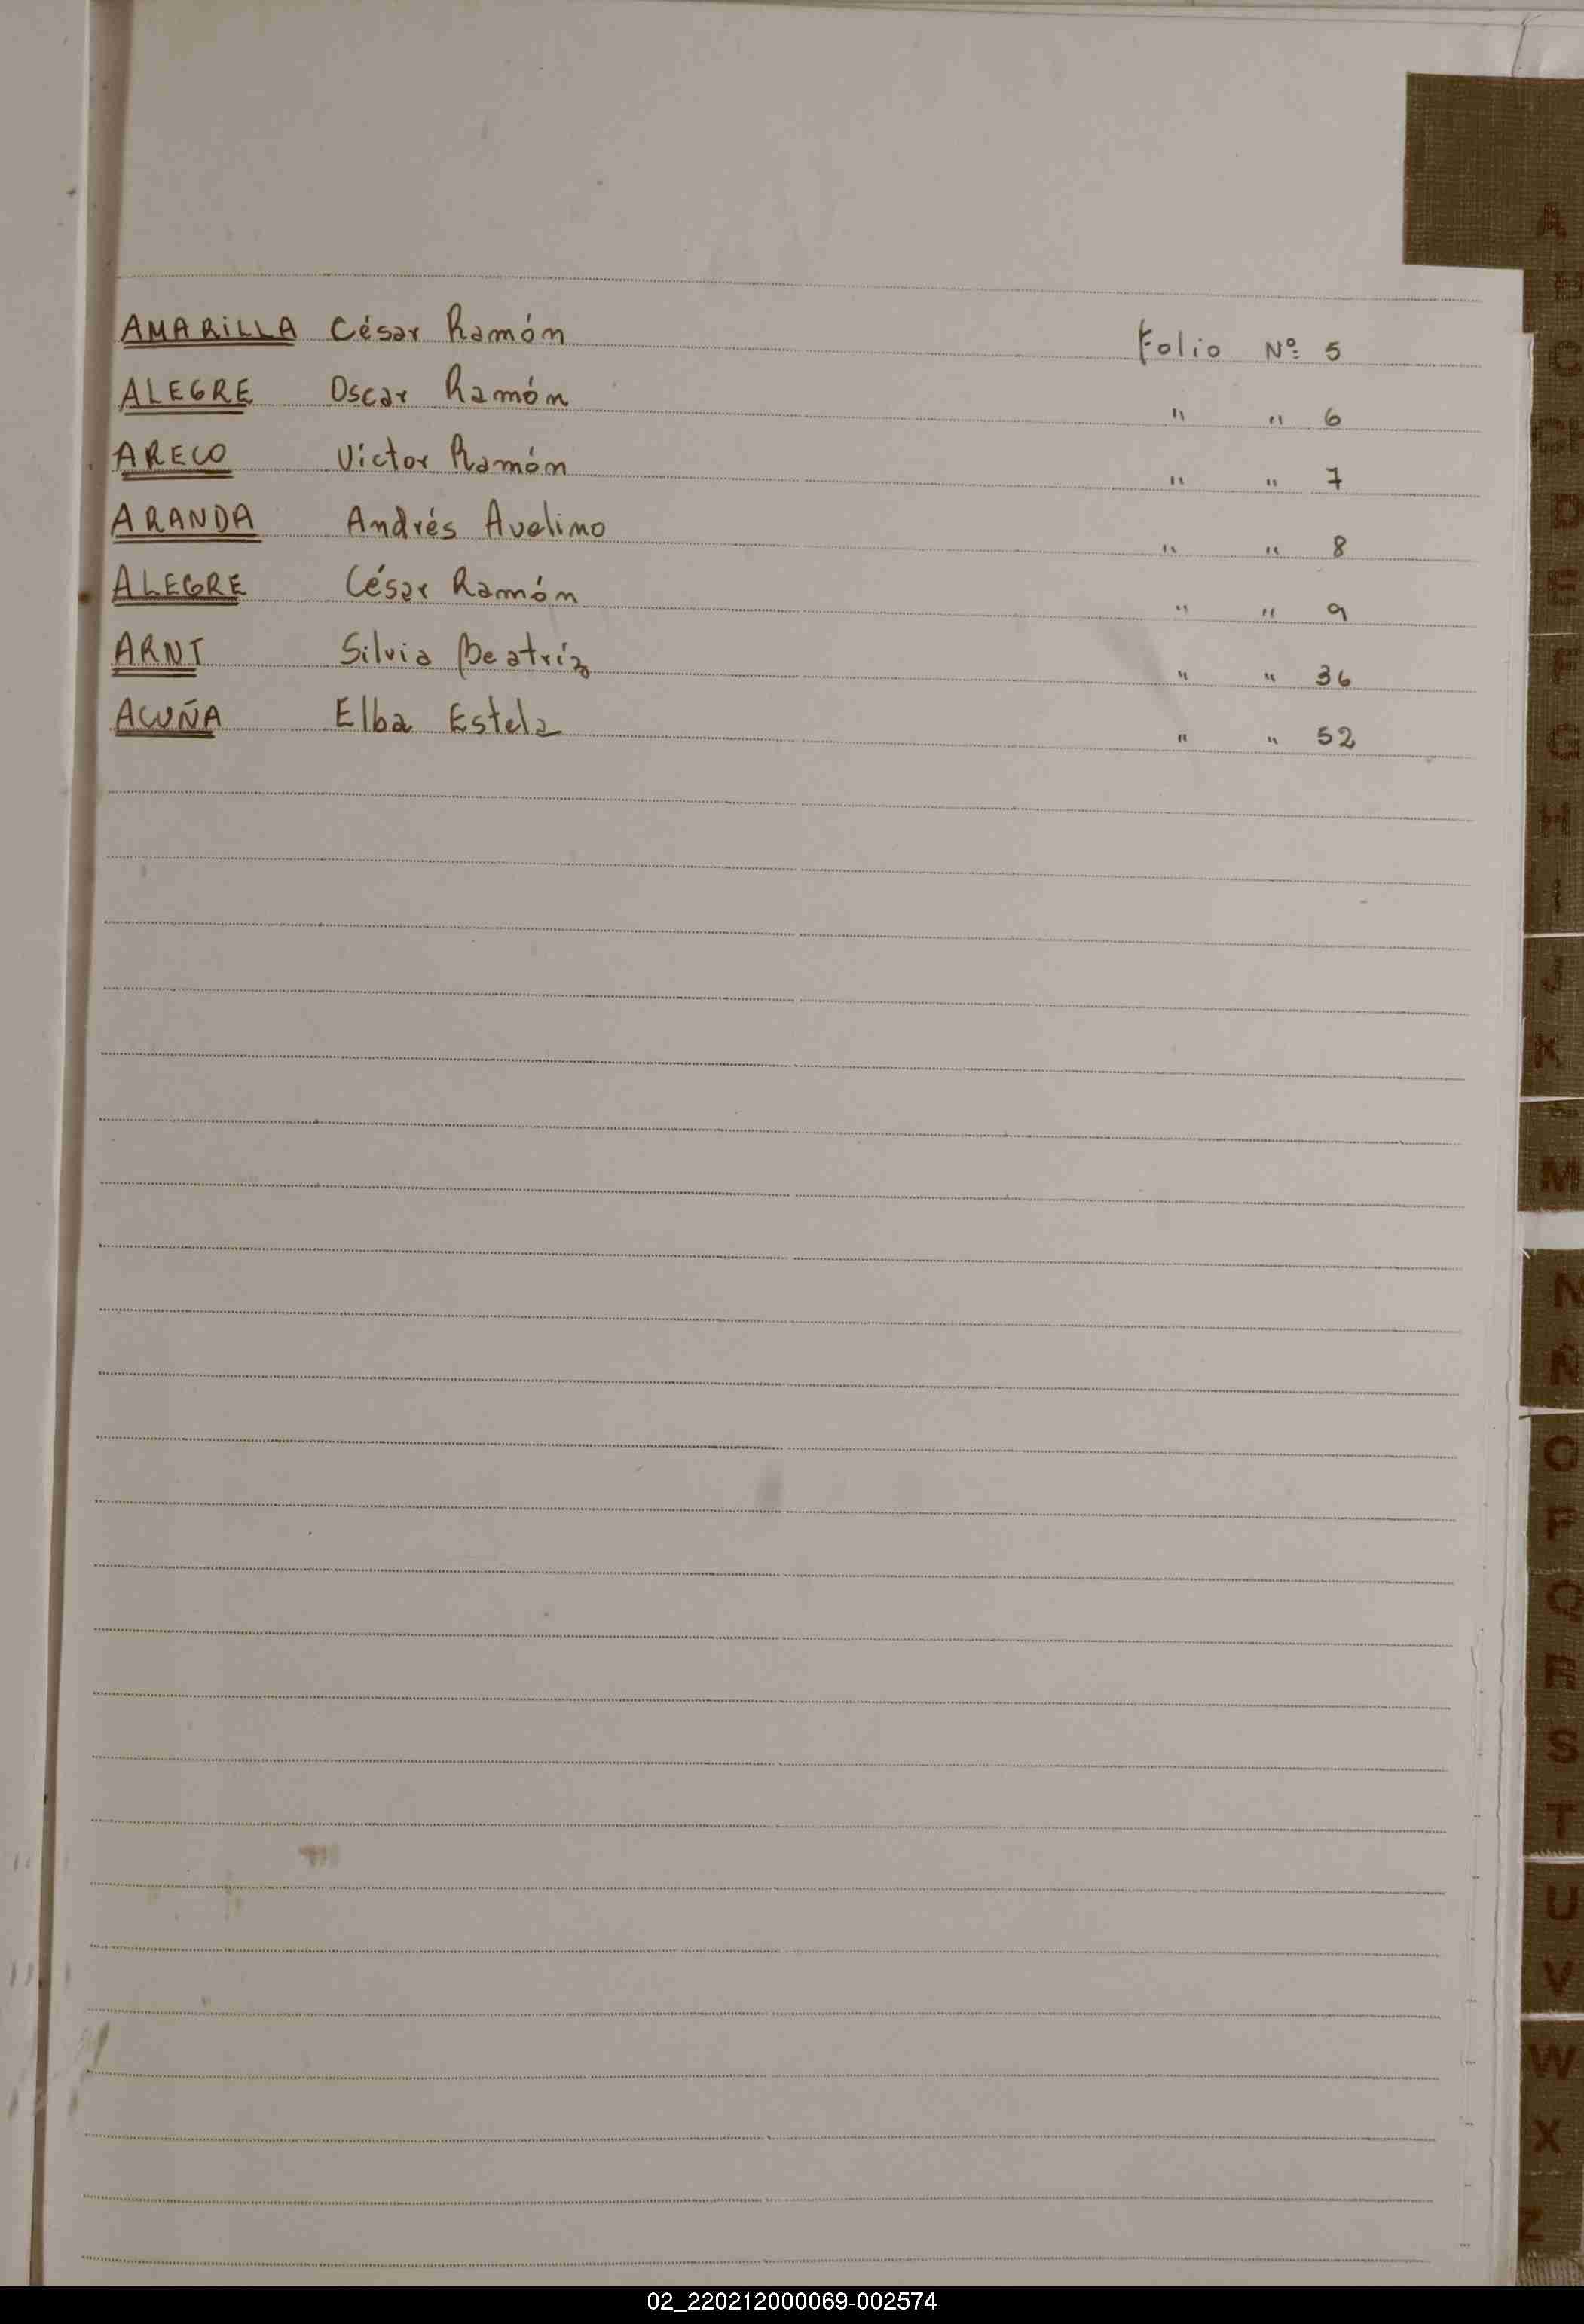 AMARILLA César Ramón Folio Nº 5
ALEGRE Oscar Ramón " " 6
ARECO Victor Ramón " " 7
ARANDA Andrés Avelino " " 8
ALEGRE César Ramón " " 9
ARNT Silvia Beatríz " " 36
ACUÑA Elba Estela " " 52
A
B
C
CH
D
E
F
G
H
I
J
K
M
N
Ñ
O
P
Q
R
S
T
U
V
W
X
Z
02_220212000069-002574